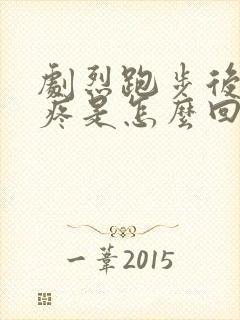 劇烈跑步後
疼是怎麼回
一葦2015